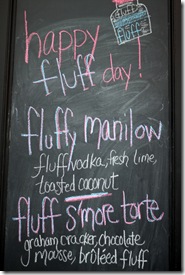 happy
fluff day!
FLUFF
fluffy manilow
fluff vodka, fresh lime,
toasted coconut
fluff s'more torte
graham cracker, chocolate
mousse, brûléed fluff